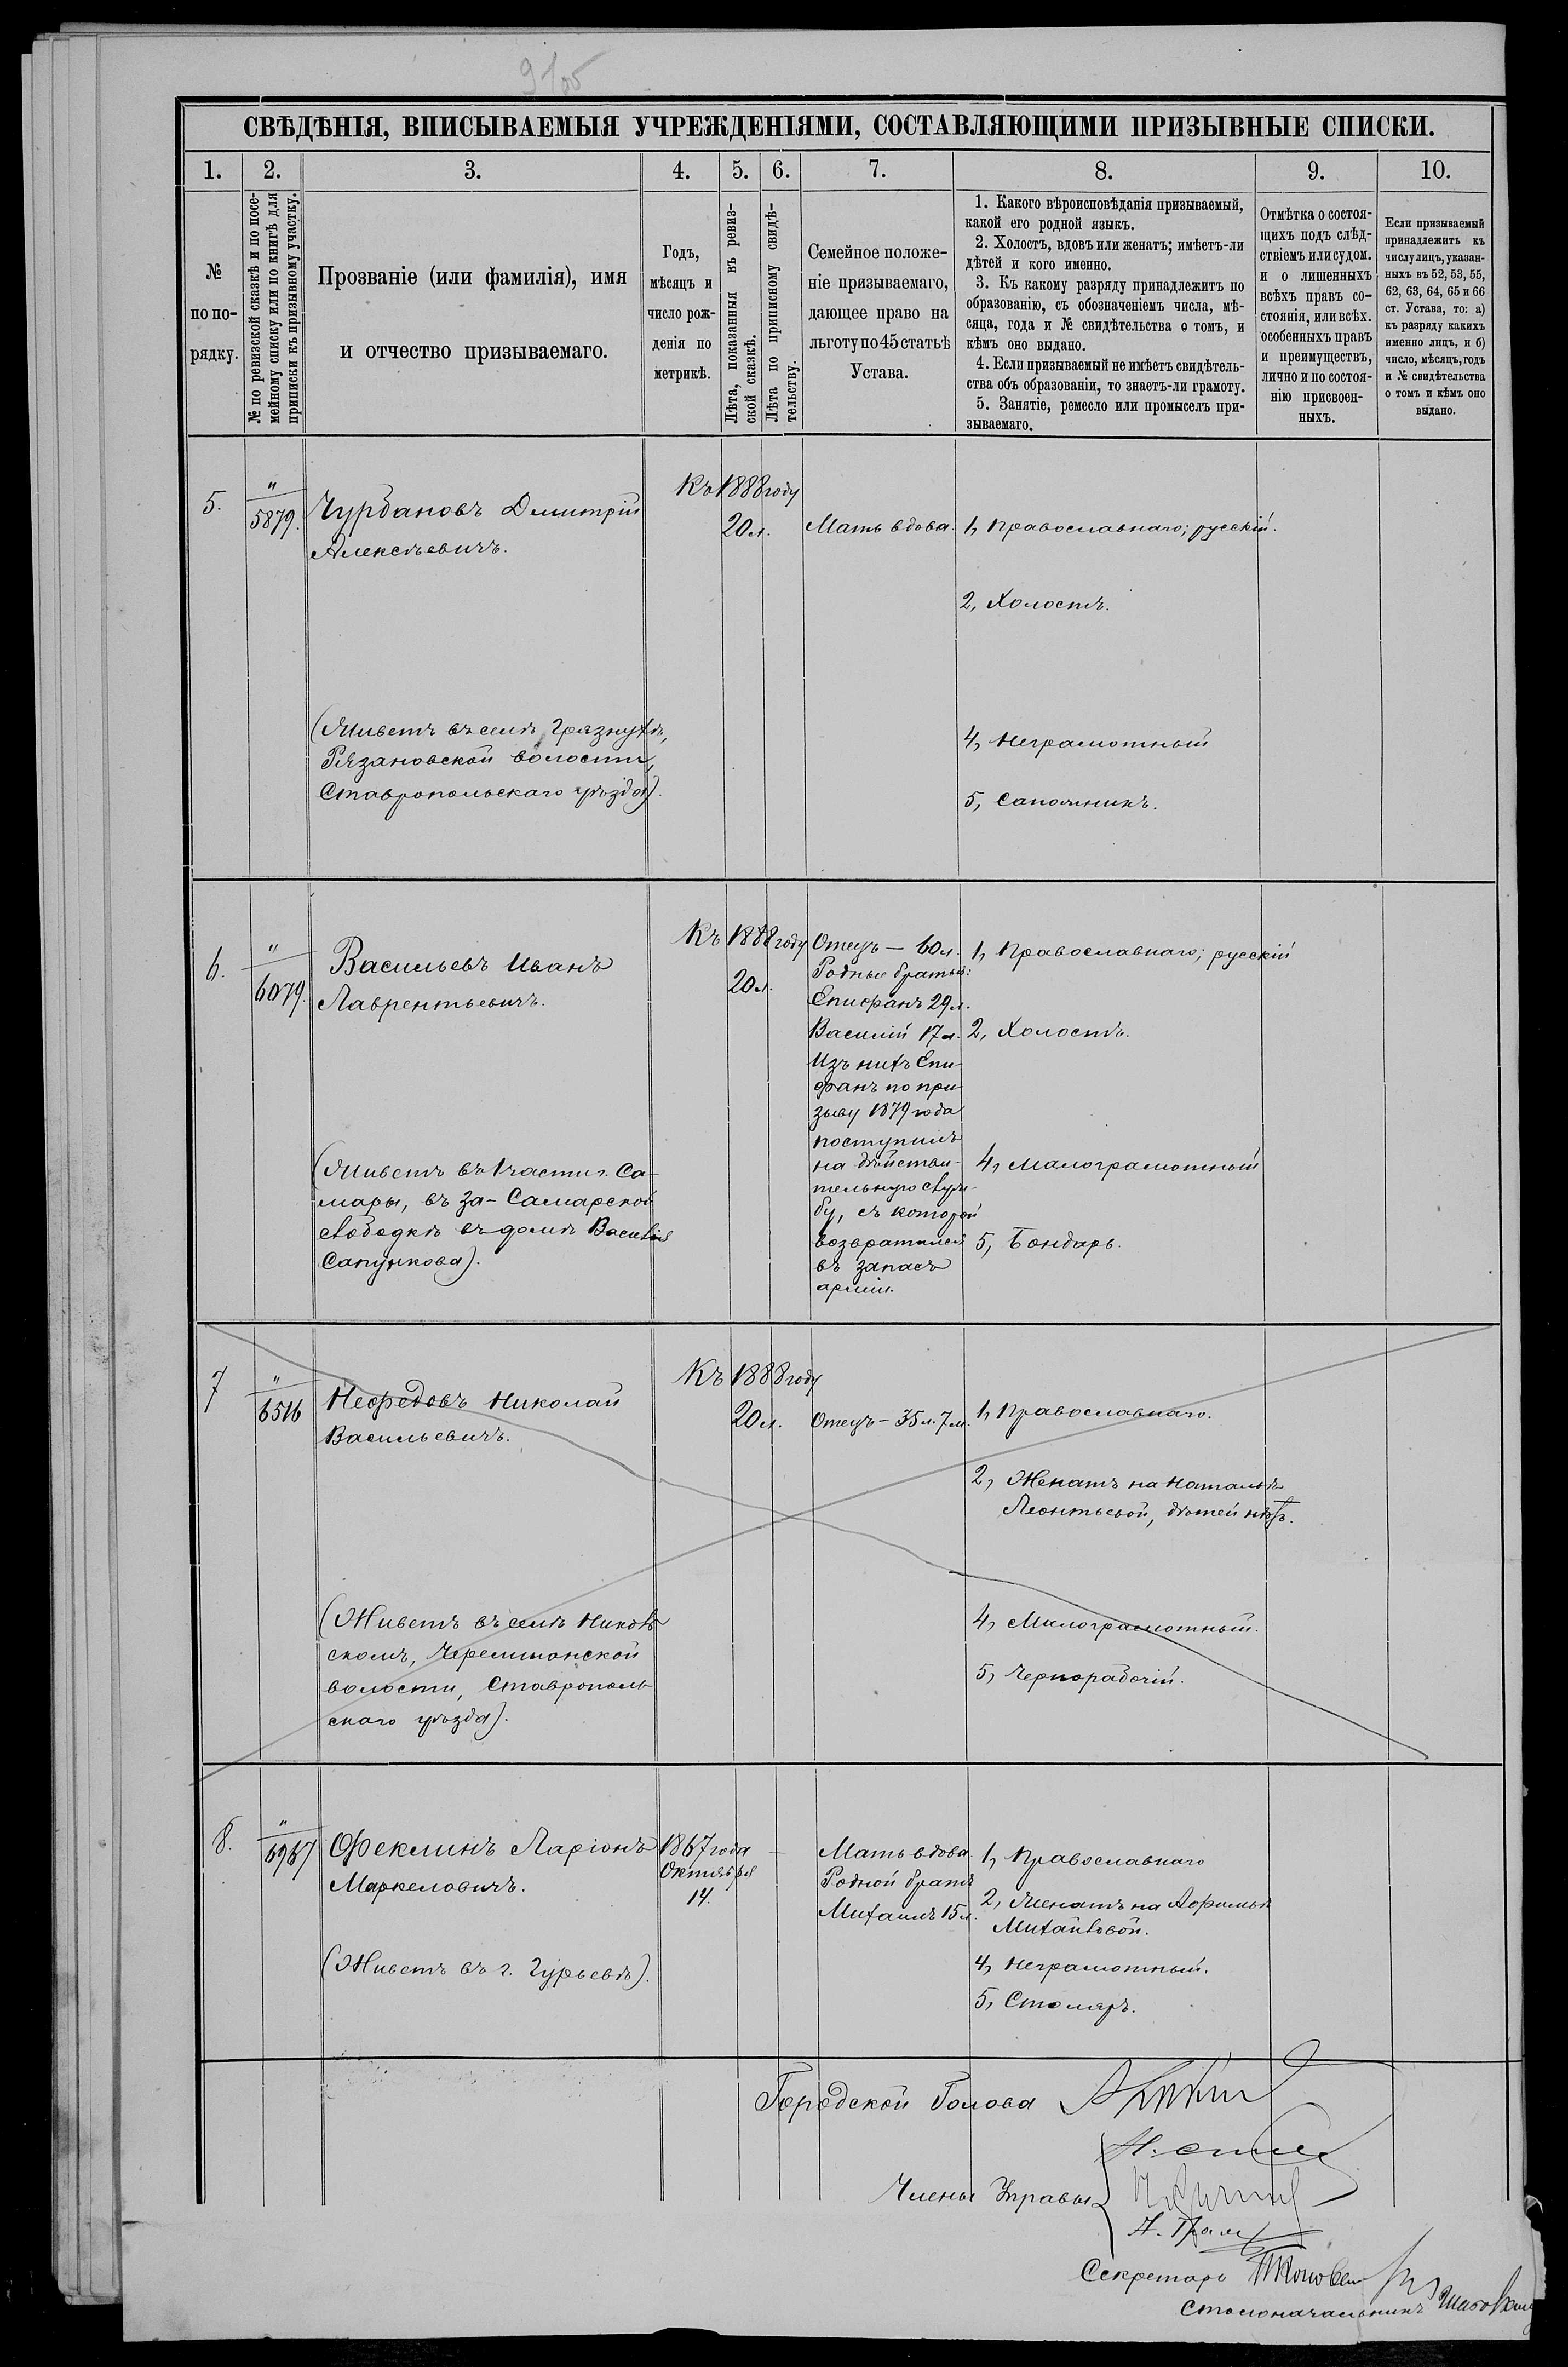 9105
СВѢДѢНІЯ, ВПИСЫВАЕМЫЯ УЧРЕЖДЕНІЯМИ, СОСТАВЛЯЮЩИМИ ПРИЗЫВНЫЕ СПИСКИ.
1. 2. 3. 4. 5. 6. 7. 8. 9. 10.
№
по по-
рядку.
№ по ревизской сказкѣ и по посе-
мейному списку или по книгѣ для
приписки къ призывному участку.
Прозваніе (или фамилія), имя
и отчество призываемаго.
Годъ,
мѣсяцъ и
число рож-
денія по
метрикѣ.
Лѣта, показанныя въ ревиз-
ской сказкѣ.
Лѣта по приписному свидѣ-
тельству.
Семейное положе-
ніе призываемаго,
дающее право на
льготу по 45 статьѣ
Устава.
1. Какого вѣроисповѣданія призываемый,
какой его родной языкъ.
2. Холостъ, вдовъ или женатъ; имѣетъ-ли
дѣтей и кого именно.
3. Къ какому разряду принадлежитъ по
образованію, съ обозначеніемъ числа, мѣ-
сяца, года и № свидѣтельства о томъ, и
кѣмъ оно выдано.
4. Если призываемый не имѣетъ свидѣтель-
ства объ образованіи, то знаетъ-ли грамоту.
5. Занятіе, ремесло или промыселъ при-
зываемаго.
Отмѣтка о состоя-
щихъ подъ слѣд-
ствіемъ или судом.
и о лишенныхъ
всѣхъ правъ со-
стоянія, или всѣх.
особенныхъ правъ
и преимуществъ,
лично и по состоя-
нію присвоен-
ныхъ.
Если призываемый
принадлежитъ къ
числу лицъ, указан-
ныхъ въ 52, 53, 55,
62, 63, 64, 65 и 66
ст. Устава, то: а)
къ разряду какихъ
именно лицъ, и б)
число, мѣсяцъ, годъ
и № свидѣтельства
о томъ и кѣмъ оно
выдано.
5.
"
5879.
Чурбановъ Димитрій
Алексѣевичъ.
(Живетъ въ селѣ Грязнухѣ,
Рязановской волости,
Ставропольскаго уѣзда).
Къ 1888 году
20 л.
Мать вдова.
1, Православнаго; русскій.
2, Холостъ.
4, Неграмотный
5, Сапожникъ.
6.
"
6079.
Васильевъ Иванъ
Лаврентьевичъ.
(Живетъ въ 1 части г. Са-
мары, въ за-Самарской
слободкѣ въ домѣ Василія
Сапункова).
Къ 1888 году
20 л.
Отецъ – 60 л.
Родные братья:
Епифанъ 29 л.
Василій 17 л.
Изъ нихъ Епи-
фанъ по при-
зыву 1879 года
поступилъ
на дѣйстви-
тельную служ-
бу, съ которой
возвратился
въ запасъ
арміи.
1, Православнаго; русскій
2, Холостъ.
4, Малограмотный
5, Бондарь.
7
"
6516
Нефедовъ Николай
Васильевичъ.
(Живетъ въ селѣ Николь
скомъ, Черемшанской
волости, Ставрополь
скаго уѣзда).
Къ 1888 году
20 л.
Отецъ – 35 л. 7 м.
1, Православнаго.
2, Женатъ на Натальѣ
Леонтьевой, дѣтей нѣтъ.
4, Малограмотный.
5, Чернорабочій.
8.
"
6967
Феклинъ Ларіонъ
Маркеловичъ.
(Живетъ въ г. Гурьевѣ).
1867 года
Октября
14.
Мать вдова.
Родной братъ
Михаилъ 15 л.
1, Православнаго
2, Женатъ на Афимьѣ
Михайловой.
4, Неграмотный.
5, Столяръ.
Городской Голова
Члены Управы
Секретарь
Столоначальникъ